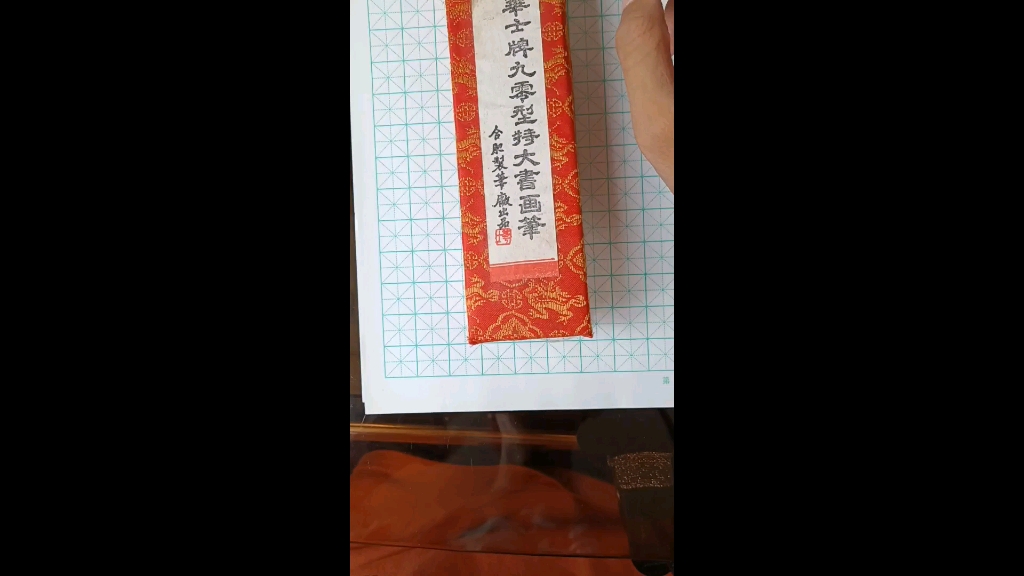 華士牌九零型特大書画筆
合肥製筆廠出品
第